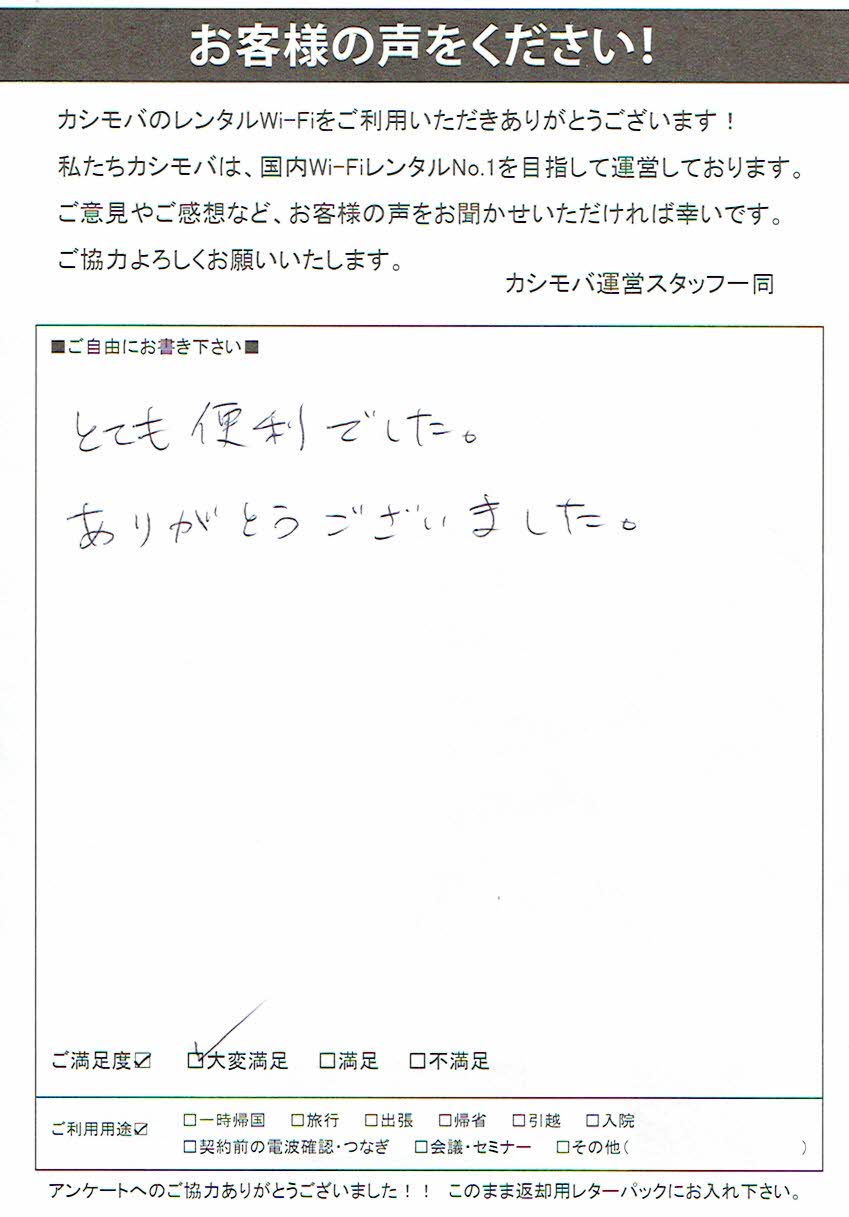 お客様の声をください!
カシモバのレンタルWi-Fiをご利用いただきありがとうございます！
私たちカシモバは、国内Wi-FiレンタルNo.1を目指して運営しております。
ご意見やご感想など、お客様の声をお聞かせいただければ幸いです。
ご協力よろしくお願いいたします。
カシモバ運営スタッフ一同
■ご自由にお書き下さい■
とても便利でした。
ありがとうございました。
ご満足度☑ ☑大変満足 □満足 □不満足
ご利用用途☑ □一時帰国 □旅行 □出張 □帰省 □引越 □入院
□契約前の電波確認・つなぎ □会議・セミナー □その他( )
アンケートへのご協力ありがとうございました！！ このまま返却用レターパックにお入れ下さい。